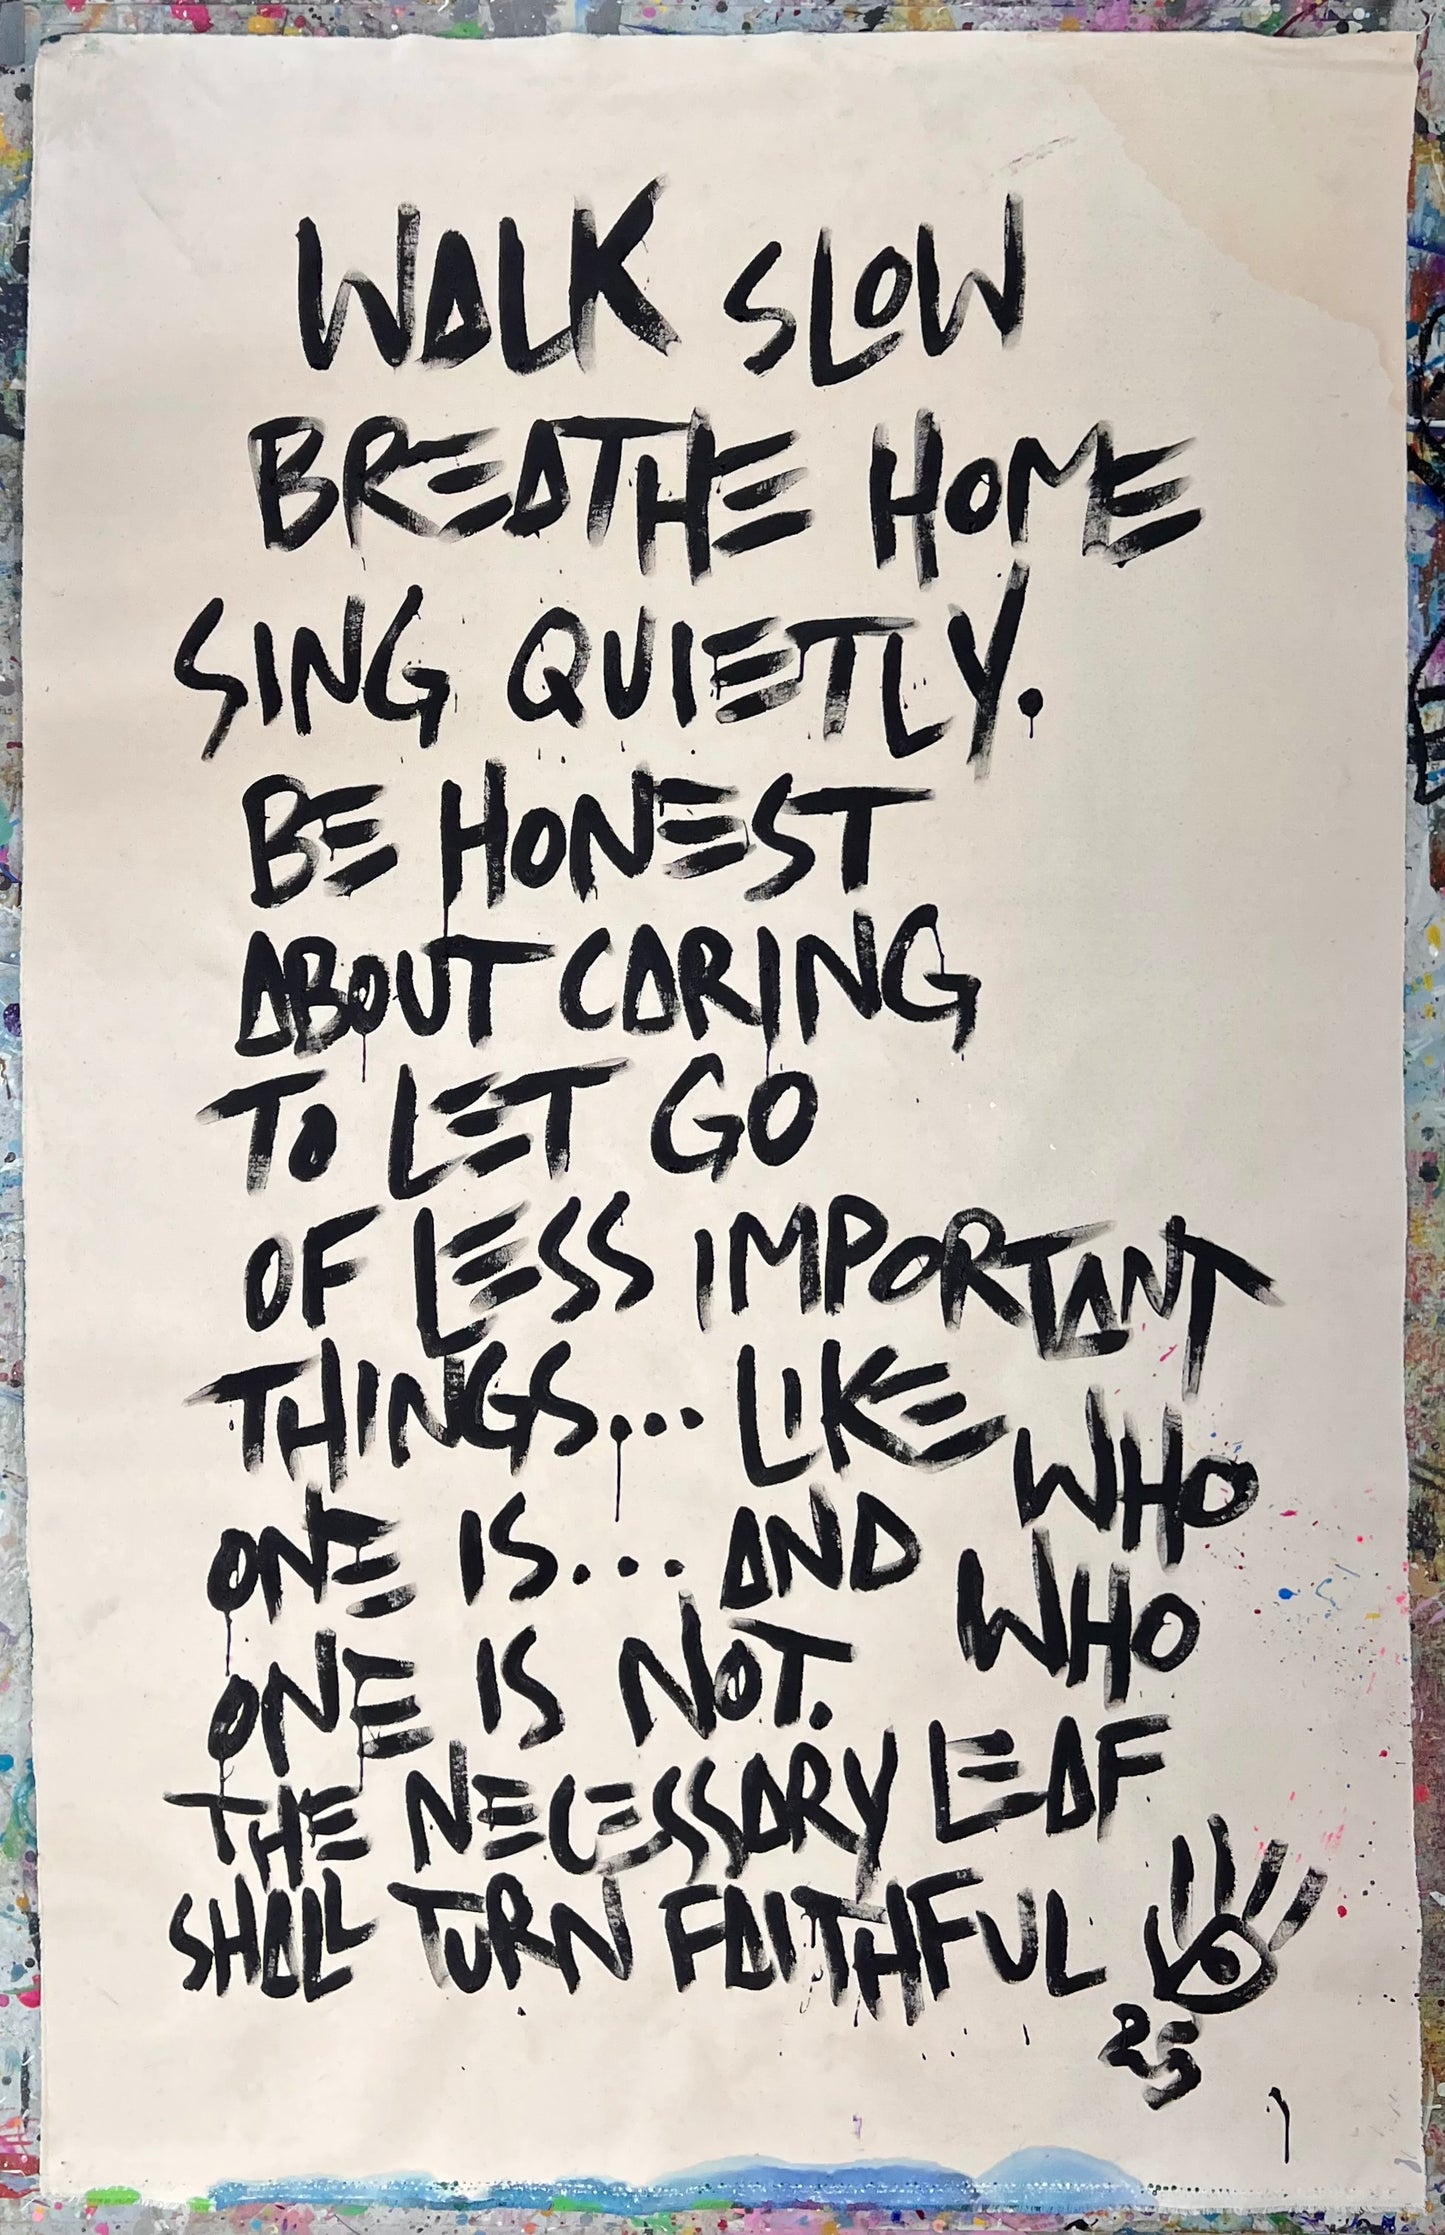 WALK SLOW
BREATHE HOME
SING QUIETLY.
BE HONEST
ABOUT CARING
TO LET GO
OF LESS IMPORTANT
THINGS... LIKE WHO
ONE IS... AND WHO
ONE IS NOT.
THE NECESSARY LEAF
SHALL TURN FAITHFUL
25